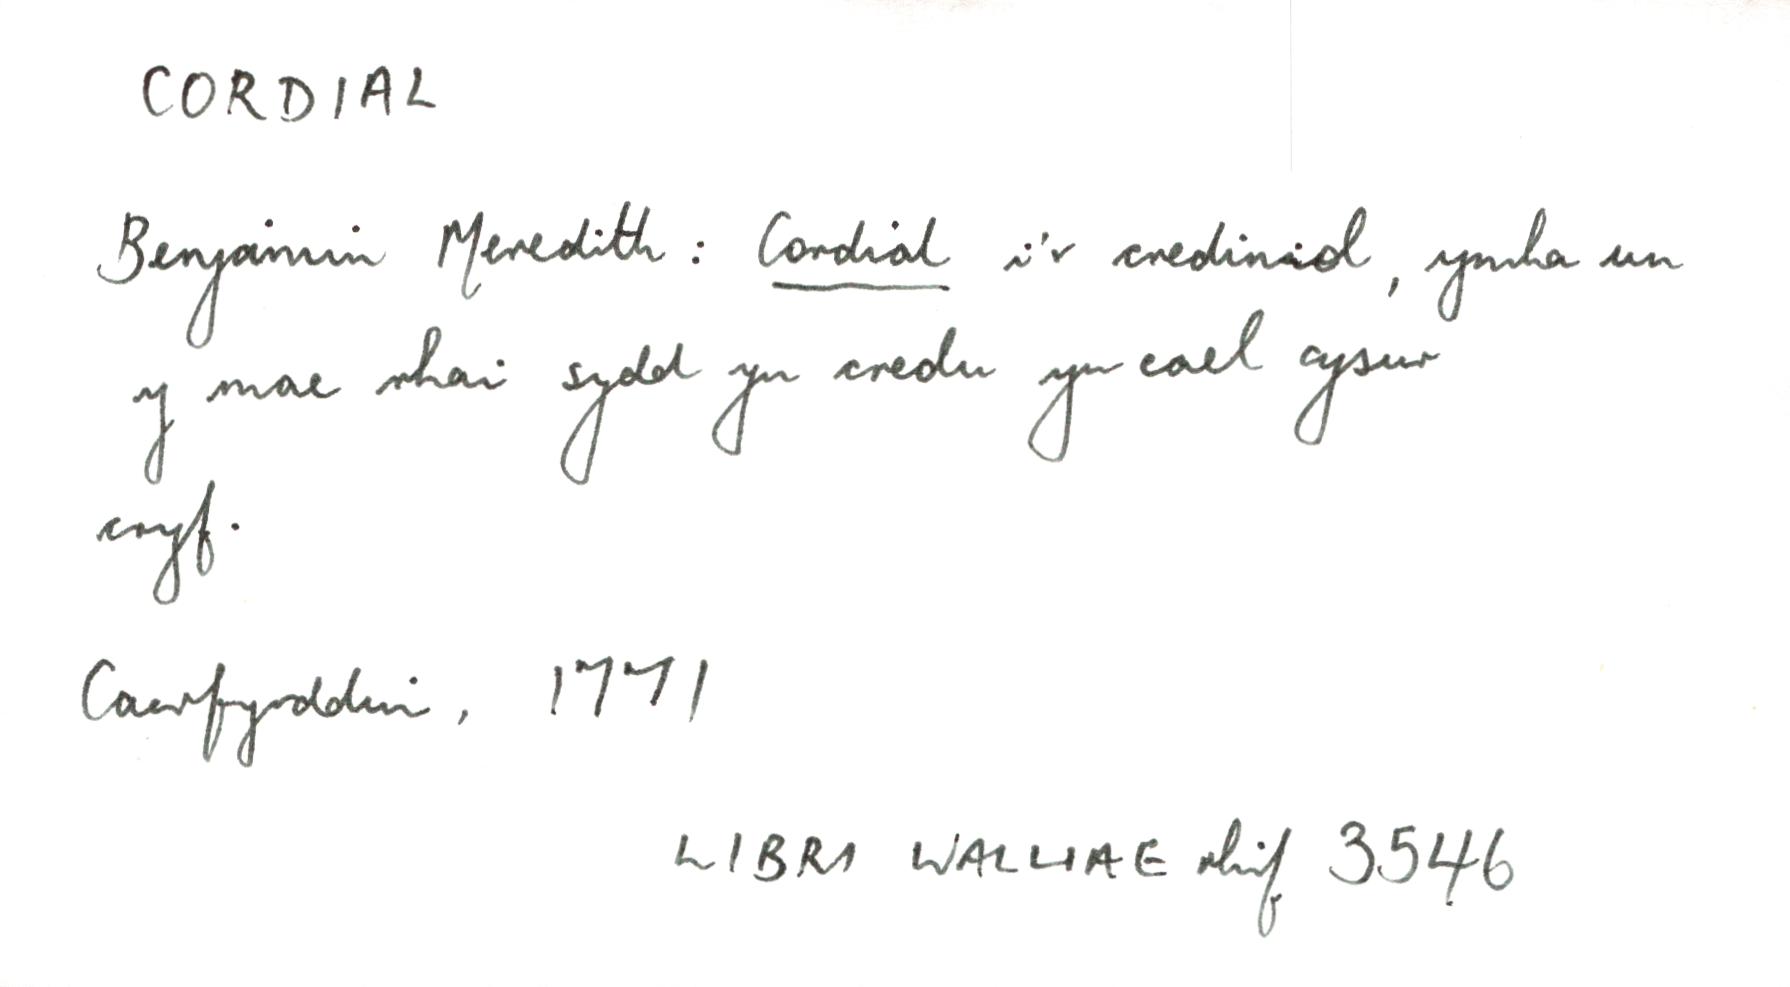 CORDIAL
Benjamin Meredith: Cordial i'r crediniol, ymha un
y mae rhai sydd yn credu yn cael cysur
cryf.
Caerfyrddin, 1771
LIBRI WALLIAE rhif 3546